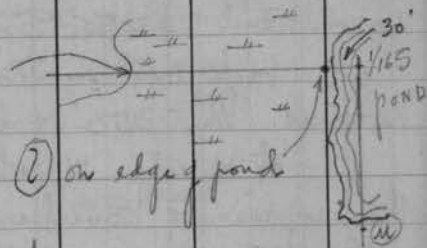 30'
1/16 S
POND
② on edge of pond